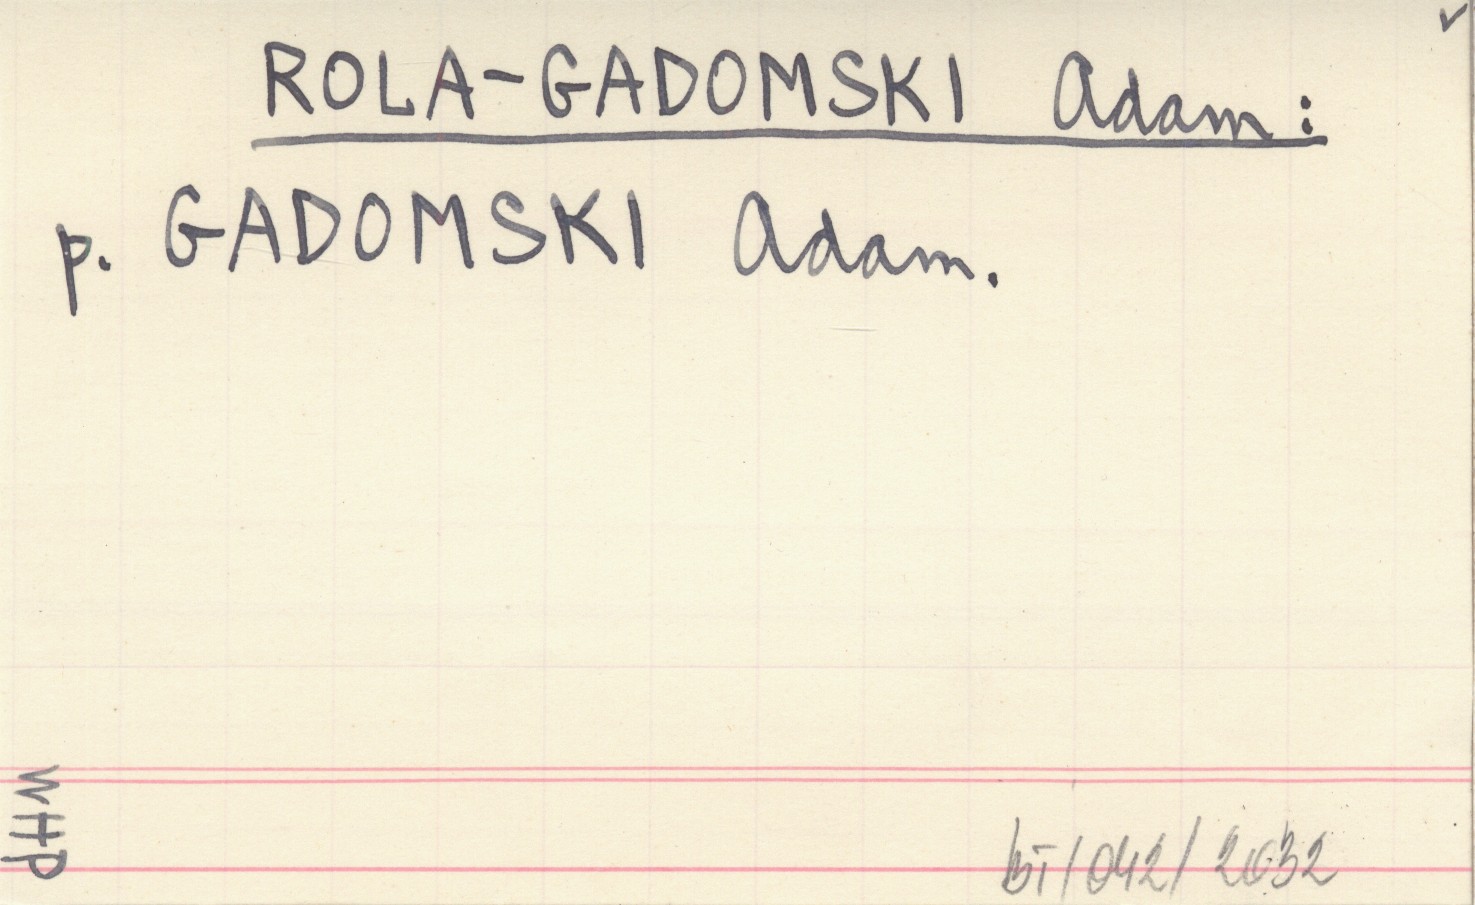 ROLA-GADOMSKI Adam:
p. GADOMSKI Adam.
WHP
BI/042/2032